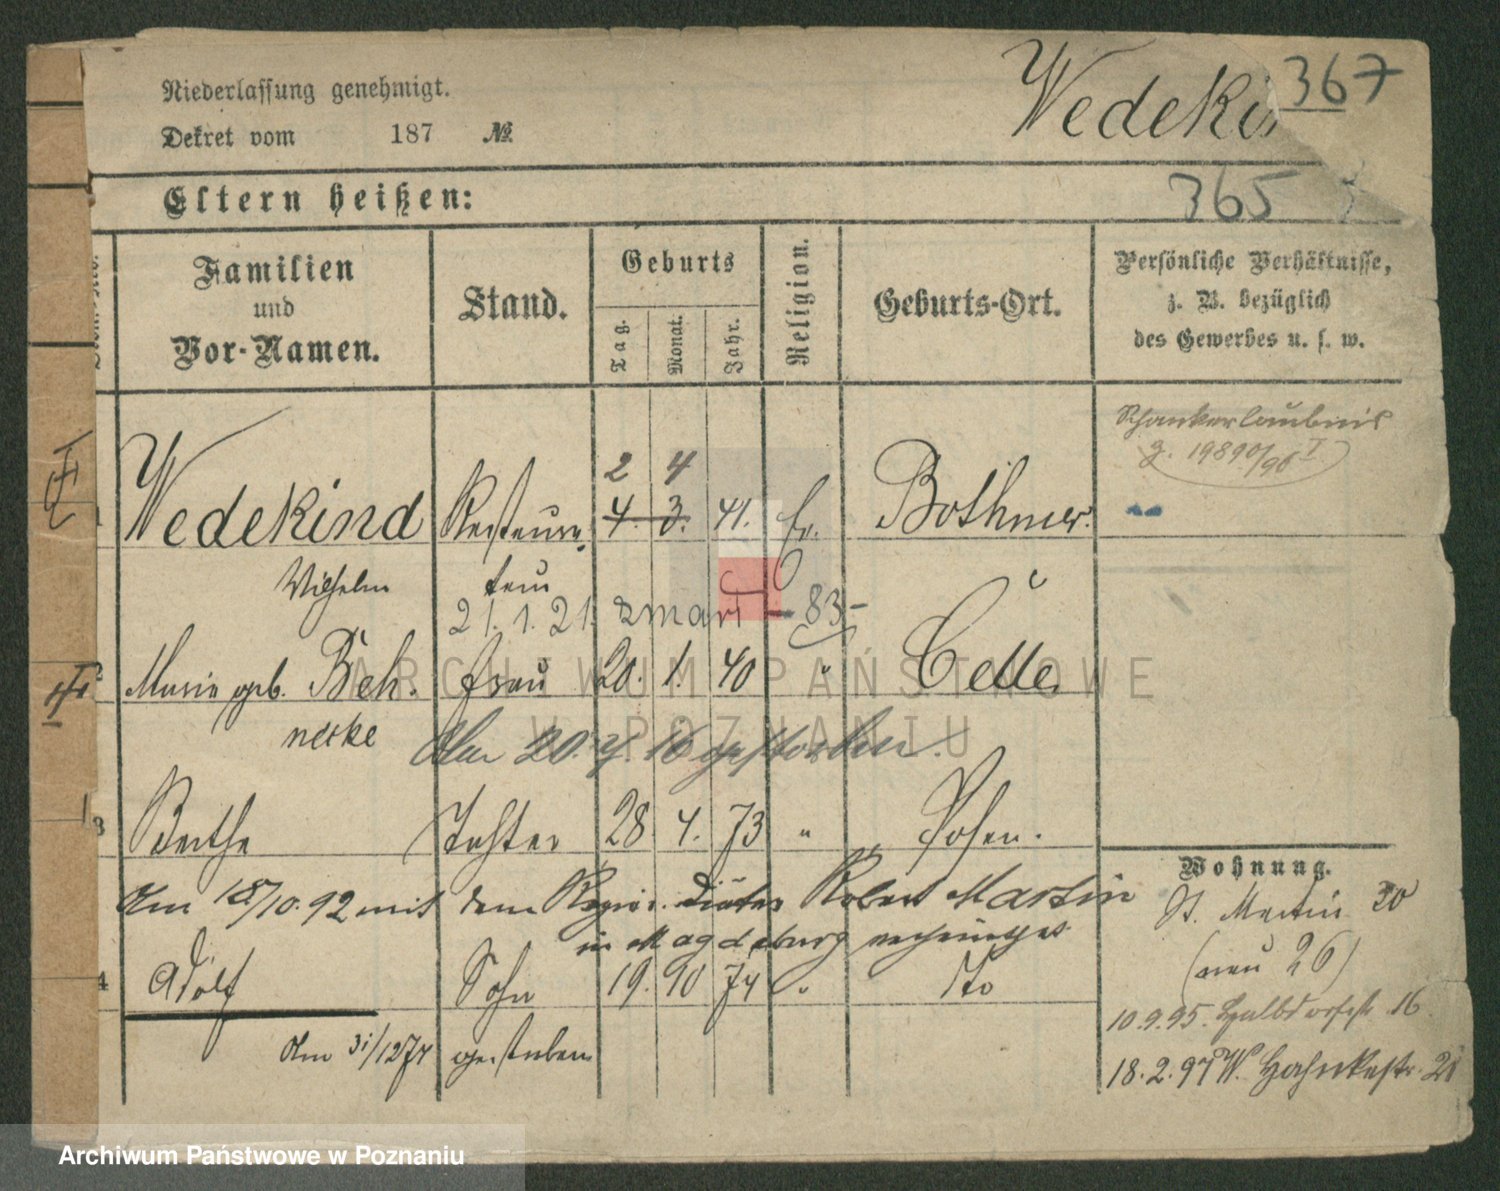 Niederlassung genehmigt.
Dekret vom 187 №
Wedekin
367
Eltern heißen:
365
Familien
und
Vor-Namen.
Stand.
Geburts
Tag.
Monat.
Jahr.
Religion.
Geburts-Ort.
Persönliche Verhältnisse,
z. B. bezüglich
des Gewerbes u. s. w.
Schankerlaubnis
2 4
1 Wedekind Restaura- 4. 3. 41. Ev. Bothmer.
Wilhelm teur
21. 1. 21. 83-
2 Marie geb. Beh- Frau 20. 1. 40 " Celle
necke
Am 20. gestorben.
3 Berthe Tochter 28 4. 73 " Posen.
Am 18/10.92 mit dem Robert Martin
in Magdeburg
4 Adolf Sohn 19. 10 74 " dto
Am 31/12 74 gestorben
Wohnung.
St. Martin 30
(neu 26)
10.9.95. Halbdorfstr. 16.
18.2.97 W. 21
ARCHIWUM PAŃSTWOWE
W POZNANIU
Archiwum Państwowe w Poznaniu